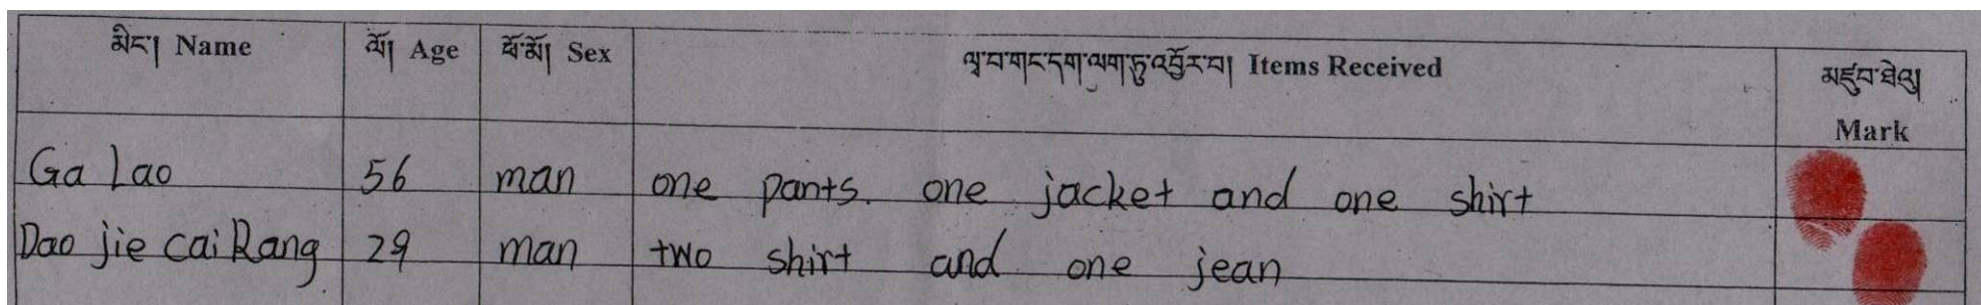 མིང། Name ལོ། Age ཕོ་མོ། Sex ལྭ་བ་གང་དག་ལག་ཏུ་འབྱོར་བ། Items Received མཛུབ་ཐེལ། Mark
Ga Lao 56 man one pants. one jacket and one shirt
Dao jie cai Rang 29 man two shirt and one jean